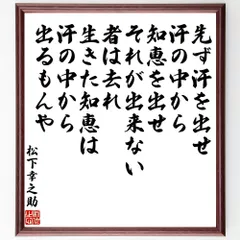 先ず汗を出せ
汗の中から
知恵を出せ
それが出来ない
者は去れ
生きた知恵は
汗の中から
出るもんや
松下幸之助